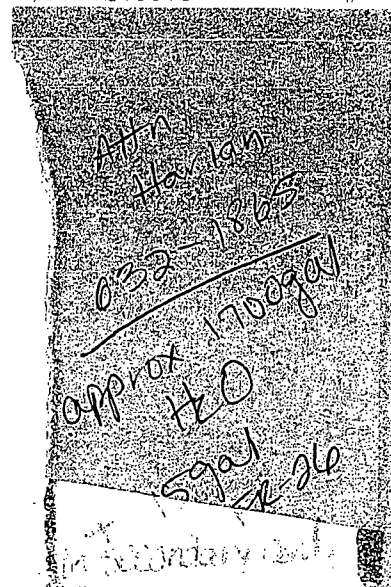 Attn
Harlan
032-1865
approx 1700gal
H2O
5gal
in Secondary